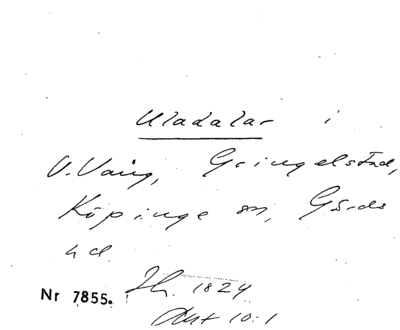 Uladalar i
V. Vång, Gringelstad,
Köpinge sn, Gärds
hd
Jh. 1824
Akt 10:1
Nr 7855.